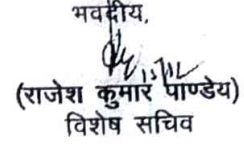 भवदीय,
(राजेश कुमार पाण्डेय)
विशेष सचिव